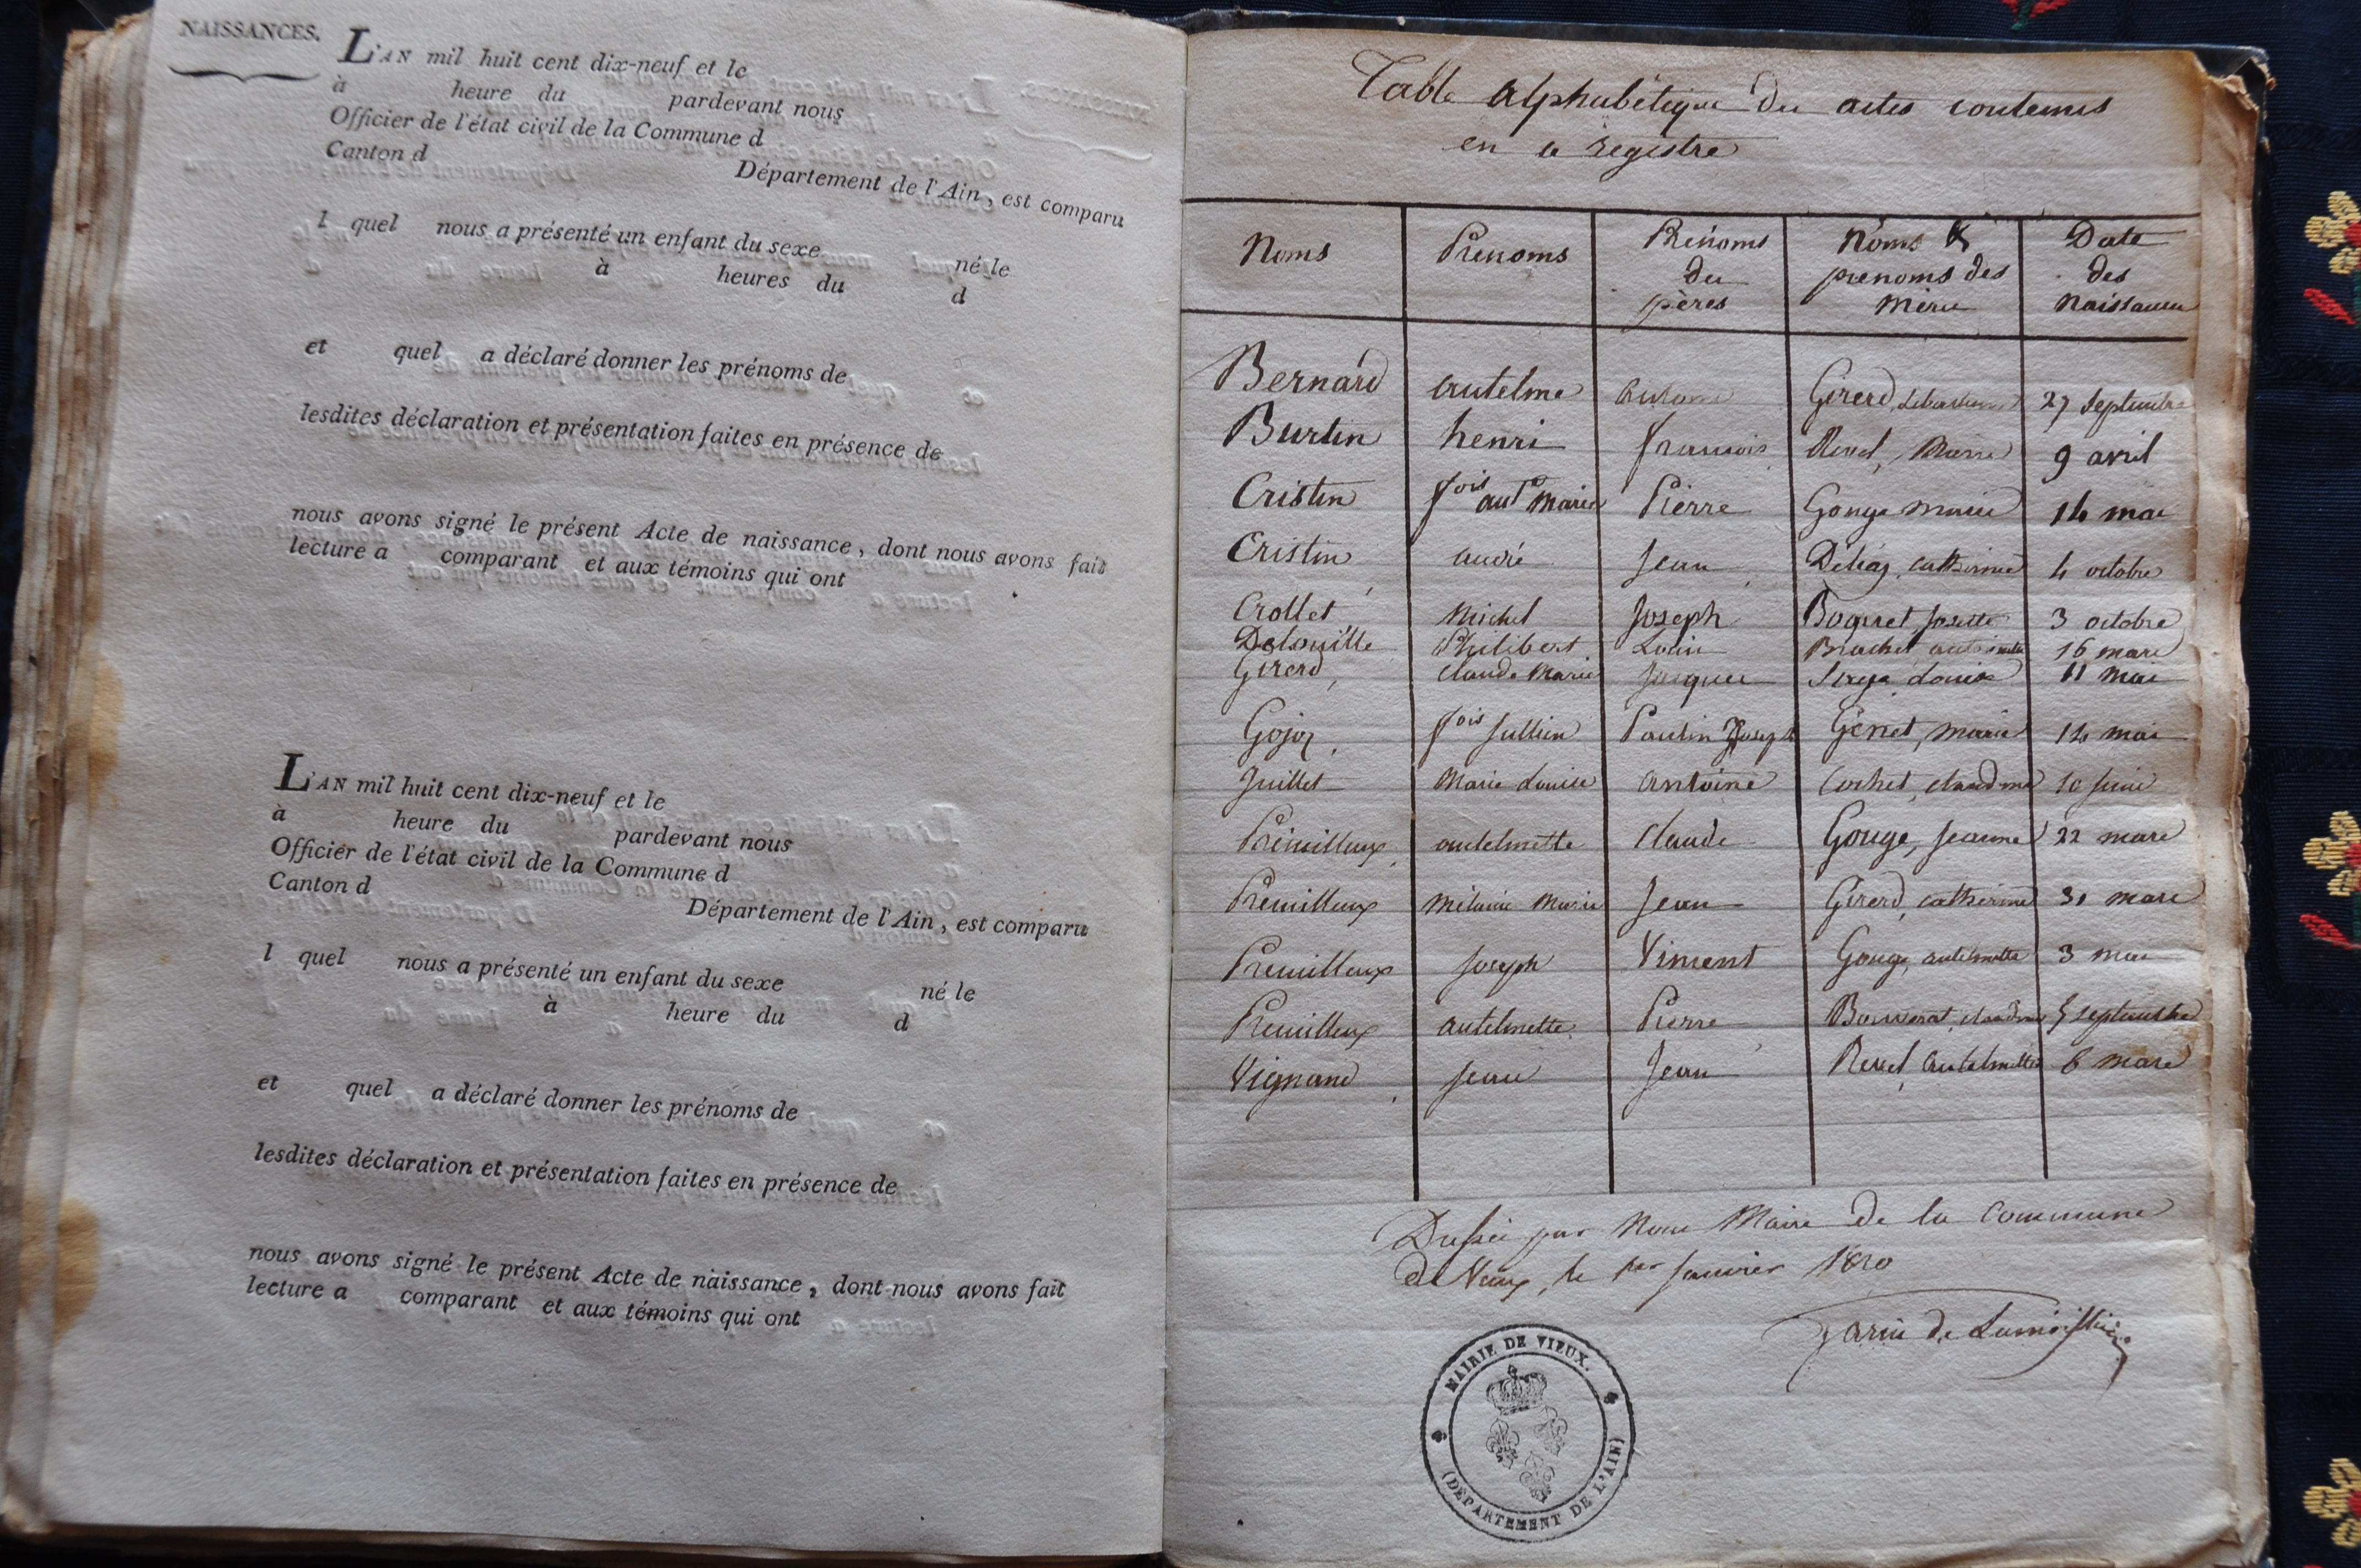 NAISSANCES.
L'AN mil huit cent dix-neuf et le
à heure du pardevant nous
Officier de l'état civil de la Commune d
Canton d
Département de l'Ain, est comparu
l quel nous a présenté un enfant du sexe
né le
à heures du d
et quel a déclaré donner les prénoms de
lesdites déclaration et présentation faites en présence de
nous avons signé le présent Acte de naissance, dont nous avons fait
lecture a comparant et aux témoins qui ont
L'AN mil huit cent dix-neuf et le
à heure du pardevant nous
Officier de l'état civil de la Commune d
Canton d
Département de l'Ain, est comparu
l quel nous a présenté un enfant du sexe
né le
à heure du d
et quel a déclaré donner les prénoms de
lesdites déclaration et présentation faites en présence de
nous avons signé le présent Acte de naissance, dont nous avons fait
lecture a comparant et aux témoins qui ont
Table alphabétique des actes contenus
en ce registre
Noms Prenoms Prénoms des pères Noms & prenoms des mères Date des Naissances
Bernard antelme antoine Girerd, 27 septembre
Burtin henri francois Revel, Marie 9 avril
Cristin fois ant marie Pierre Gouge marie 14 mai
Cristin andré Jean catherine 4 octobre
Crollet Michel Joseph Boguet Josette 3 octobre
Delouille Philibert Louis Brachet 16 mars
Girerd, Claude Marie Jacques Louise 11 mai
Gojoz fois Jullien Paulin Joseph Genet, marie 14 mai
Juillet Marie Louise antoine Cochet, claudine 10 juin
Premilleux antelmette Claude Gouge, jeanne 22 mars
Premilleux mélanie Marie Jean Girerd, catherine 31 mars
Premilleux Joseph Vincent Gouge, antelmette 3 mai
Premilleux antelmette Pierre claudine 5 septembre
Vignand jean Jean Revel, antelmette 6 mars
Dressée par Nous Maire de la Commune
de Vieux, le 1er Janvier 1820
MAIRIE DE VIEUX.
(DÉPARTEMENT DE L'AIN)